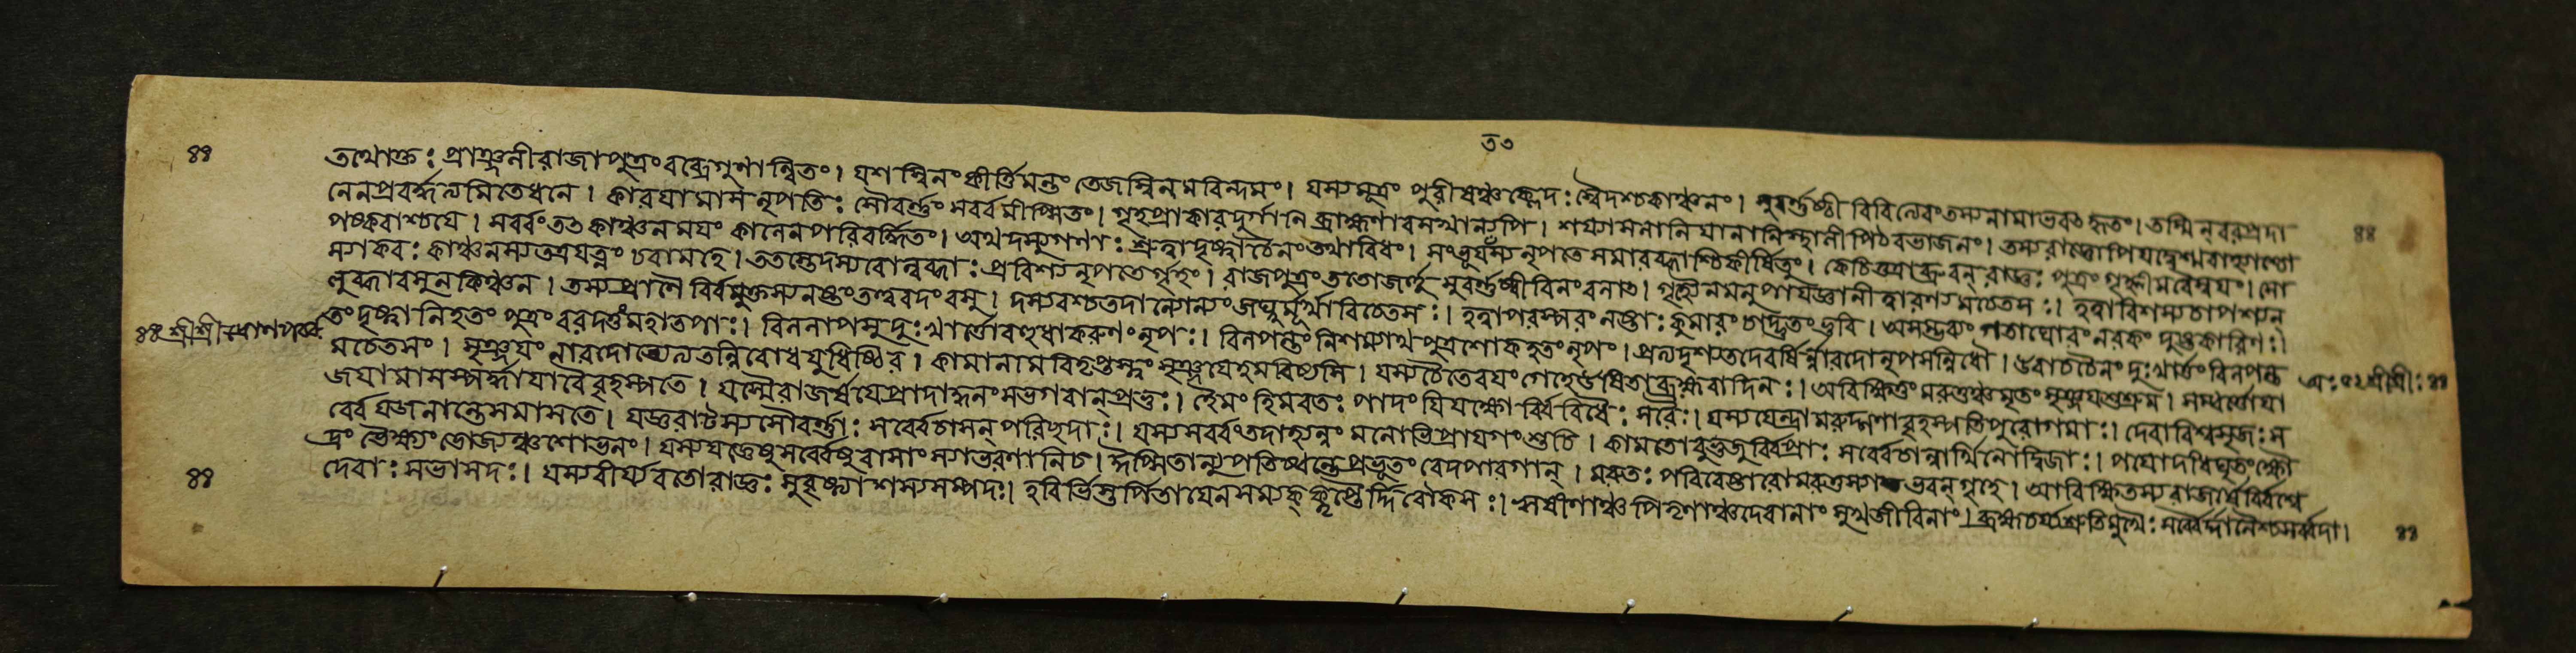 ৪৪
৩৩
তথোক্তঃ প্রাঞ্জলী রাজা পুত্রং বব্রে গুণান্বিতং। যশস্বিনং কীর্ত্তিমন্তং তেজস্বিনমরিন্দমং। যস্য মূত্রং পুরীষঞ্চ ক্লেদঃ স্বেদশ্চ কাঞ্চনং। সুবর্ণষ্ঠীবিরিত্যেবং তস্য নামাভবৎ কৃতং। তস্মিন্ বরপ্রদা
নেন প্রবর্দ্ধত্যমিতে ধনে। কারয়ামাস নৃপতিঃ সৌবর্ণং সর্ব্বমীপ্সিতং। গৃহপ্রাকারদুর্গানি ব্রাহ্মণাবসথান্যপি। শয্যাসনানি যানানি স্থালী পিঠরভাজনং। তস্য রাজ্ঞোপি যদ্বেশ্ম বাহ্যাশ্চো ৪৪
পস্করাশ্চ যে। সর্ব্বং তৎ কাঞ্চনময়ং কালেন পরিবর্দ্ধিতং। অথ দস্যুগণাঃ শ্রুত্বা দৃষ্ট্বা চৈনং তথাবিধং। সংভূয় তস্য নৃপতে সমারব্ধাশ্চিকীর্ষিতুং। কেচিত্তত্রাব্রুবন্ রাজ্ঞঃ পুত্রং গৃহ্ণীম বৈ স্বয়ং। সো
স্যাকরঃ কাঞ্চনস্য তত্র যত্নং চরামহে। ততস্তে দস্যবো লুব্ধাঃ প্রবিশ্য নৃপতের্গৃহং। রাজপুত্রং ততো জহ্রু সুবর্ণষ্ঠীবিনং বলাৎ। গৃহ্যৈনমনুপায়জ্ঞা নীত্বারণ্যমচেতসঃ। হত্বা বিশস্য চাপশ্যন্
লুব্ধা বসু ন কিঞ্চন। তস্য প্রাণৈর্ব্বিমুক্তস্য নষ্টং তদ্বরদং বসু। দস্যবশ্চ তদান্যোন্যং জঘ্নুর্মূর্খা বিচেতসঃ। হত্বা পরস্পরং নষ্টাঃ কুমারং চাদ্ভুতং ভুবি। অসম্ভাব্যং গতা ঘোরং নরকং দুষ্টকারিণঃ।
৪৪ শ্রীশ্রীদ্রোণপর্ব্ব তং দৃষ্ট্বা নিহতং পুত্রং বরদত্তং মহাতপাঃ। বিললাপ সুদুঃখার্ত্তো বহুধা করুণং নৃপঃ। বিলপন্তং নিশম্যাথ পুত্রশোকহতং নৃপং। প্রত্যদৃশ্যত দেবর্ষির্ন্নারদো নৃপসন্নিধৌ। উবাচ চৈনং দুঃখার্ত্তং বিলপন্ত
মচেতসং। সৃঞ্জয়ং নারদোভ্যেত্য তন্নিবোধ যুধিষ্ঠির। কামানামবিতৃপ্তস্ত্বং সৃঞ্জয়েহ মরিষ্যসি। যস্য চৈতে বয়ং গেহে উষিতা ব্রহ্মবাদিনঃ। অবিক্ষিতং মরুত্তঞ্চ মৃতং সৃঞ্জয় শুশ্রুম। সম্বর্ত্তো যা
জয়ামাস স্পর্দ্ধয়া বৈ বৃহস্পতে। যস্মৈ রাজর্ষয়ে প্রাদাদ্ধনং স ভগবান্ প্রভুঃ। হৈমং হিমবতঃ পাদং যিযক্ষোর্ব্বিবিধৈঃ সবৈঃ। যস্য সেন্দ্রামরুদ্গণা বৃহস্পতিপুরোগমাঃ। দেবা বিশ্বসৃজঃ স
র্ব্বে যজনান্তে সমাসতে। যজ্ঞবাটস্য সৌবর্ণাঃ সর্ব্বে চাসন্ পরিচ্ছদাঃ। যস্য সর্ব্বং তদা হ্যন্নং মনোভিপ্রায়গং শুচি। কামতো বুভুজুর্ব্বিপ্রাঃ সর্ব্বে চান্নার্থিনো দ্বিজাঃ। পয়ো দধি ঘৃতং ক্ষৌ
দ্রং ভৈক্ষ্যং ভোজ্যঞ্চ শোভনং। যস্য যজ্ঞেষু সর্ব্বেষু বাসাংস্যাভরণানি চ। ঈপ্সিতান্যুপতিষ্ঠন্তে প্রভূতং বেদপারগান্। মরুতঃ পরিবেষ্টারো মরুত্তস্যাভবন্ গৃহে। আবিক্ষিতস্য রাজর্ষের্ব্বিশ্বে
৪৪ দেবাঃ সভাসদঃ। যস্য বীর্য্যবতো রাজ্ঞঃ সুবৃষ্ট্যা শস্যসম্পদঃ। হবির্ভিস্তর্পিতা যেন সম্যক্ কৢপ্তৈর্দ্দিবৌকসঃ। ঋষীণাঞ্চ পিতৄণাঞ্চ দেবানাং সুখজীবিনাং। ব্রহ্মচর্য্যশ্রুতিমুখৈঃ সর্ব্বৈর্দ্দানৈশ্চ সর্ব্বদা। ৪৪